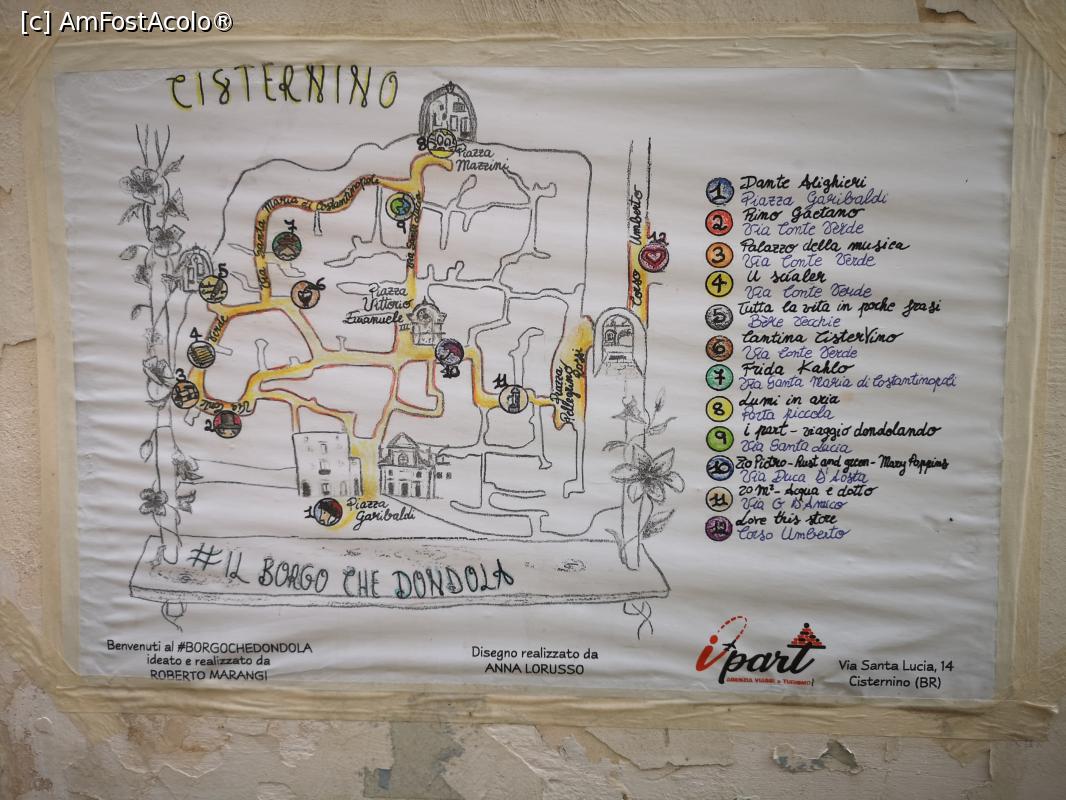 [c] AmFostAcolo®
CISTERNINO
8
Piazza
Mazzini
Via Santa Maria di Costantinopoli
9
Via Santa Lucia
7
5
6
Piazza
Vittorio
Emanuele
III
4
Verde
3
Via Conte
2
10
11
Piazza
Pellegrino
Rossi
Corso Umberto
12
1
Piazza
Garibaldi
#IL BORGO CHE DONDOLA
1 Dante Alighieri
Piazza Garibaldi
2 Rino Gaetano
Via Conte Verde
3 Palazzo della musica
Via Conte Verde
4 U scialer
Via Conte Verde
5 Tutta la vita in poche frasi
Bère Vecchie
6 Cantina CisterVino
Via Conte Verde
7 Frida Kahlo
Via Santa Maria di Costantinopoli
8 Lumi in aria
Porta piccola
9 i part - viaggio dondolando
Via Santa Lucia
10 Zio Pietro - Rust and green - Mary Poppins
Via Duca D'Aosta
11 20 m² - Acqua e dotto
Via G D'Amico
12 Love this store
Corso Umberto
Benvenuti al #BORGOCHEDONDOLA
ideato e realizzato da
ROBERTO MARANGI
Disegno realizzato da
ANNA LORUSSO
ipart
AGENZIA VIAGGI e TURISMO
Via Santa Lucia, 14
Cisternino (BR)